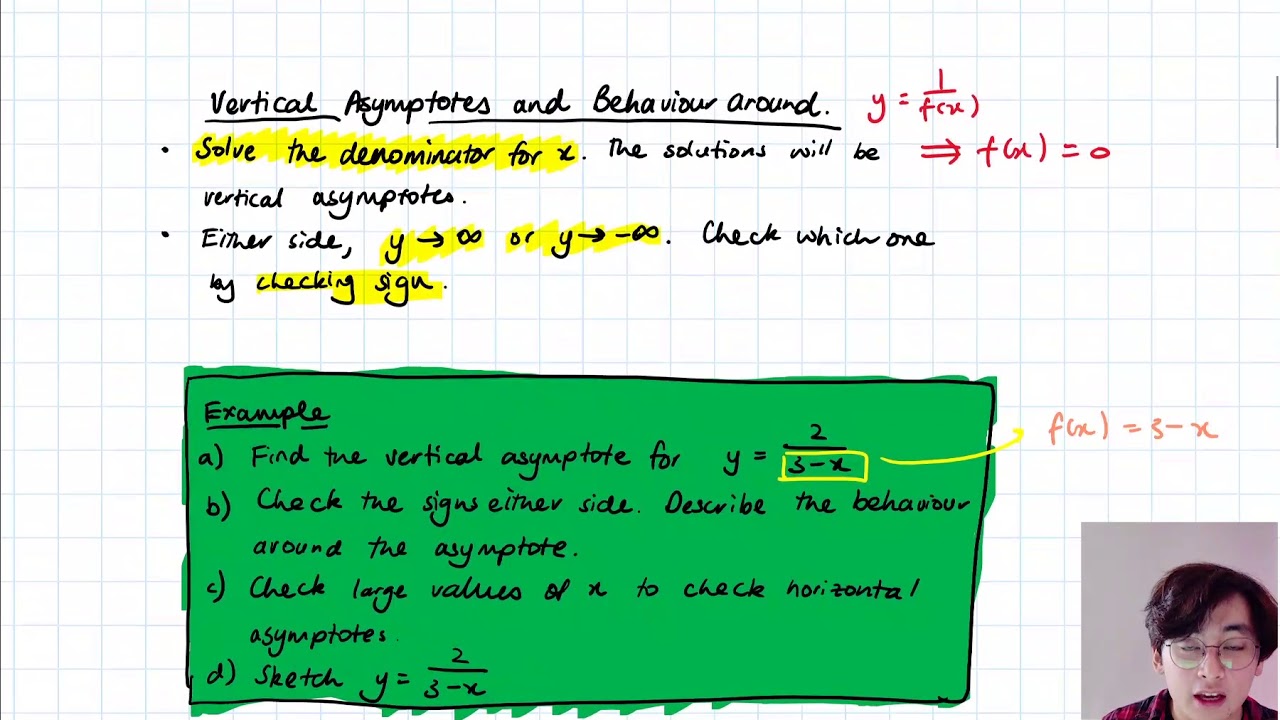 Vertical Asymptotes and Behaviour around. y = 1/f(x)
• Solve the denominator for x. The solutions will be ⟹ f(x) = 0
vertical asymptotes.
• Either side, y → ∞ or y → -∞. Check which one
by checking sign.
Example
a) Find the vertical asymptote for y = 2/(3-x) f(x) = 3-x
b) Check the signs either side. Describe the behaviour
around the asymptote.
c) Check large values of x to check horizontal
asymptotes.
d) Sketch y = 2/(3-x)